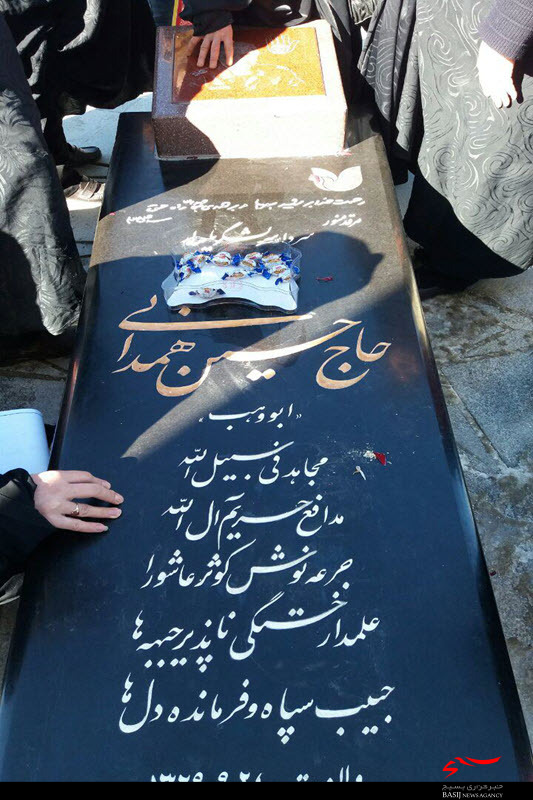 مرقد مطهر
حاج حسین همدانی
«ابووهب»
مجاهد فی سبیل الله
مدافع حریم آل الله
جرعه نوش کوثر عاشورا
علمدار خستگی ناپذیر جبهه ها
حبیب سپاه و فرمانده دل ها
ولادت ۱۳۲۹،۹،۲۸
خبرگزاری بسیج
BASIJ NEWS AGANCY